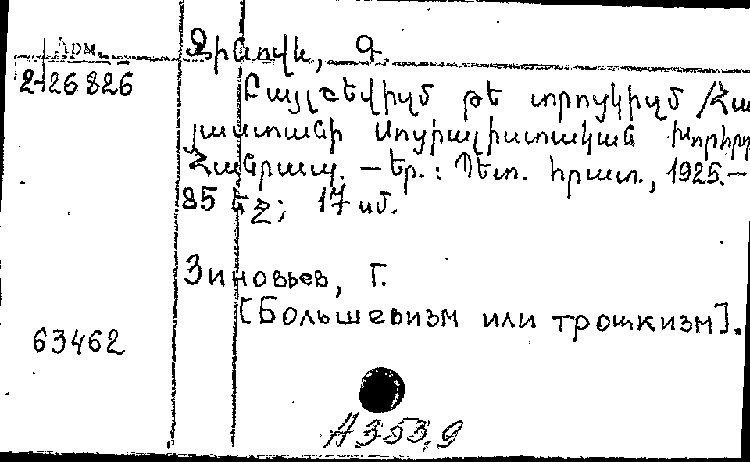 Арм.
Զինովև, Գ.
2-26826
Բայլշեվիզմ թե տրոցկիզմ /Հա
յաստանի Սոցիալիստական Խորհրդ
Հանրապ. — Եր.: Պետ. հրատ., 1925.—
85 էջ; 17 սմ.
Зиновьев, Г.
[Большевизм или троцкизм].
63462
А353,9